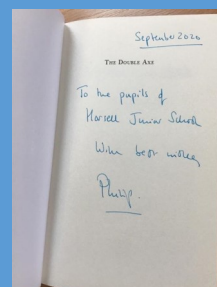 September 2020
THE DOUBLE AXE
To the pupils of
Horsell Junior School
With best wishes
Philip.